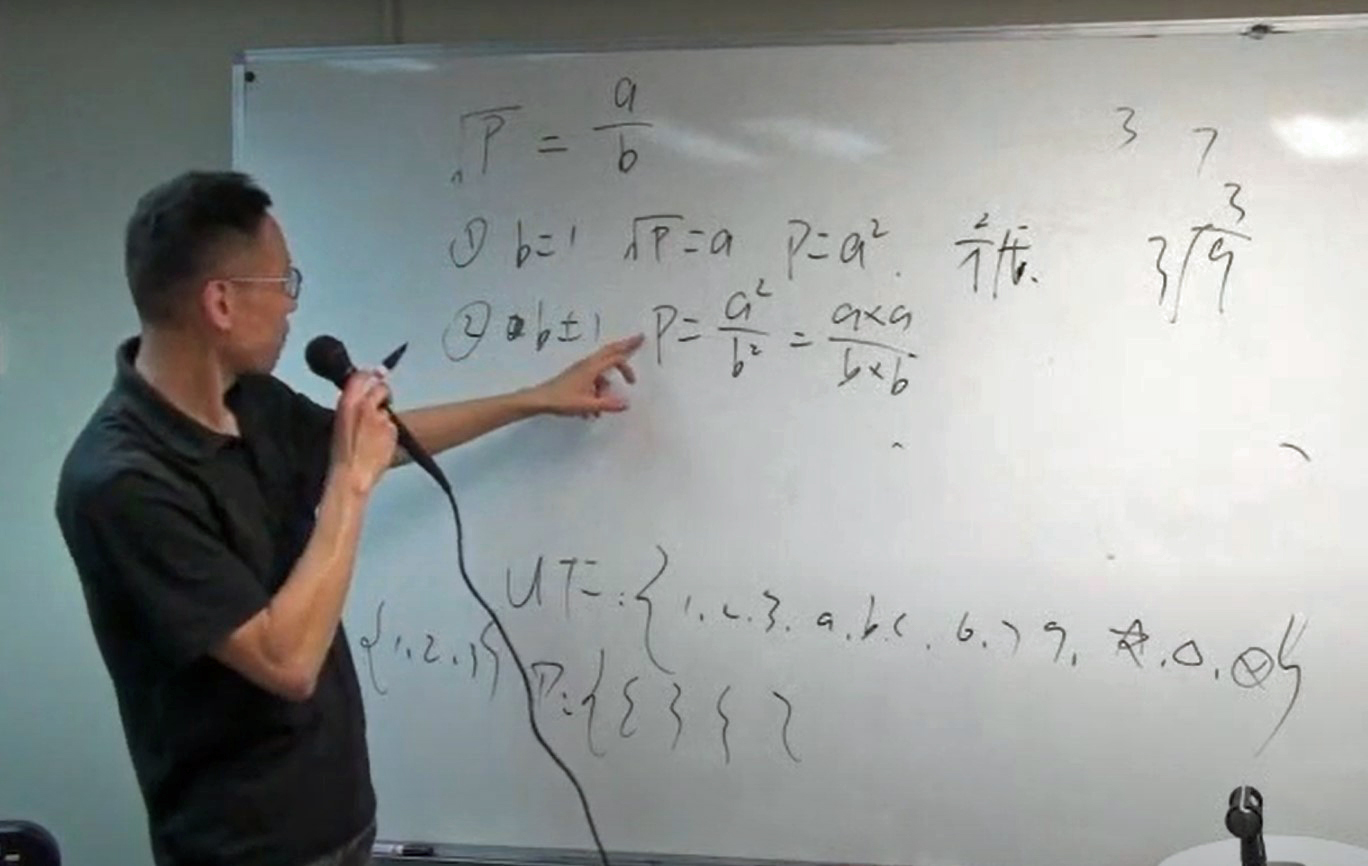 √P = a/b
3 7
① b=1 √P=a P=a².
3
3√9
② b±1 P= a²/b² = a×a/b×b
UT:{1.2.3. a.b.c. 6.7 9. ☆.△.⊗}
{1.2.3}
P:{{ } { }